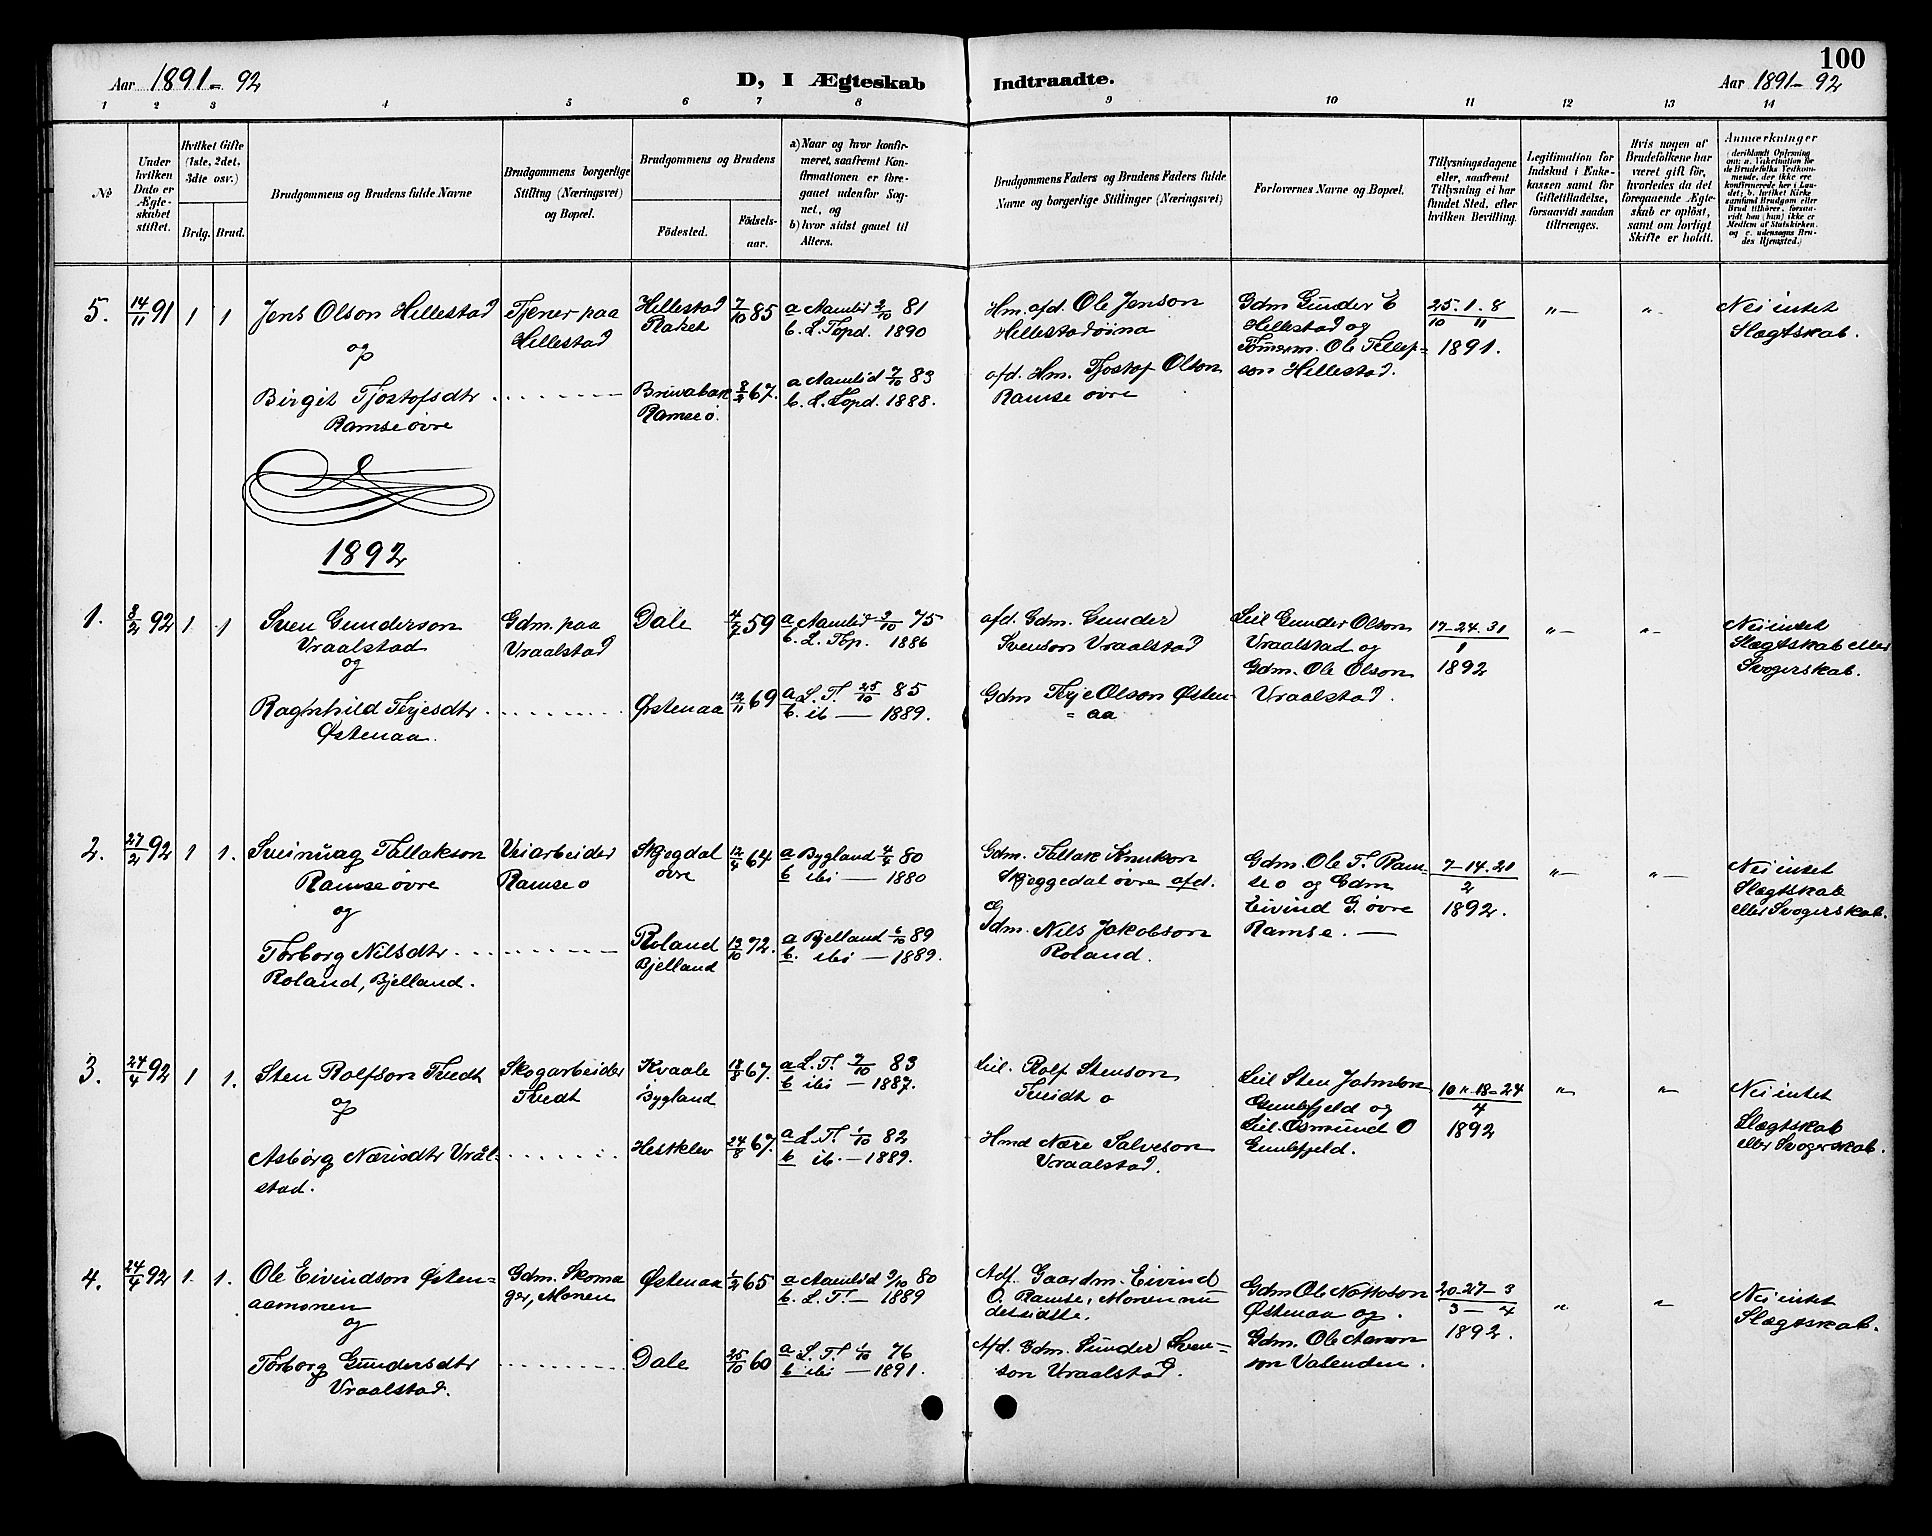 100
Aar 1891-92
D, I Ægteskab Indtraadte.
Aar 1891-92
1 2 3 4 5 6 7 8 9 10 11 12 13 14
No
Under hvilken Dato er Ægteskabet stiftet.
Hvilket Gifte (1ste, 2det, 3die osv.)
Brdg. Brud.
Brudgommens og Brudens fulde Navne
Brudgommens borgerlige Stilling (Næringsvei) og Bopæl.
Brudgommens og Brudens
Födested. Födselsaar.
a) Naar og hvor konfirmeret, saafremt Konfirmationen er foregaaet udenfor Sognet, og
b) hvor sidst gaaet til Alters.
Brudgommens Faders og Brudens Faders fulde Navne og borgerlige Stillinger (Næringsvei)
Forlovernes Navne og Bopæl.
Tillysningsdagene eller, saafremt Tillysning ei har fundet Sted, efter hvilken Bevilling.
Legitimation for Indskud i Enkekassen samt for Giftetilladelse, forsaavidt saadan tiltrænges.
Hvis nogen af Brudefolkene har været gift för, hvorledes da det foregaaende Ægteskab er oplöst, samt om lovligt Skifte er holdt.
Anmærkninger
(deriblandt Opførsing om: a. Vakcination for de Brudefolks Vedkommende, der ikke ere konfirmerede her i Landet; b. hvilket Kirkesamfund Brudgom eller Brud tilhörer, forsaavidt han (hun) ikke er Medlem af Statskirken, og c. udensogns Brudes Hjemsted.)
5. 14/11 91 1 1
Jens Olson Hillestad
og
Birgit Tjostofsdtr
Ramse øvre
Tjener paa
Hillestad
Hillestad
Baket
7/10 85
a Aamlid 2/10 81
b. L. Topd. 1890
Ramse ø.
8/2 67.
a Aamlid 7/10 83
b. L. Topd. 1888.
Hm. afd. Ole Jenson
Hillestad
afd. Hm. Tjostof Olson
Ramse øvre
Gdm Gunder E
Hillestad og
Tømerm. Ole Tellefson Hillestad.
25. 1. 8
10 11
1891.
"— "-
Nei intet
Slægtskab.
1892
1. 8/2 92 1 1
Sven Gunderson
Vraalstad
og
Ragnhild Terjesdtr
Østenaa.
Gdm. paa
Vraalstad
Dale 4/7 59
a Aamlid 3/10 75
b. L. Top. 1886
Østenaa 12/11 69
a L. T. 25/10 85
b. ib — 1889.
afd. Gdm. Gunder
Svenson Vraalstad
Gdm Terje Olson Østen=
=aa
Leil Gunder Olson
Vraalstad og
Gdm. Ole Olson
Vraalstad.
17-24.31
1
1892
"— "-
Nei intet
Slægtskab eller
Svogerskab.
2. 27/2 92 1 1.
Sveinung Tallakson
Ramse øvre
og
Torborg Nilsdtr
Roland, Bjelland.
Veiarbeider
Ramse o
Skjegdal
øvre
12/4 64
a Bygland 4/4 80
b ibi — 1880
Roland
Bjelland
13/10 72.
a Bjelland 6/10 89
b. ibi — 1889.
Gdm. Tallak Knutson
Skjeggedal øvre afd.
Gdm. Nils Jakobson
Roland.
Gdm. Ole T. Ramse o og Gdm
Eivind G. øvre
Ramse. —
7-14.21
2
1892.
"— "—
Nei intet
Slægtskab
eller Svogerskab.
3. 24/4 92 1 1.
Sten Rolfson Tvedt
og
Asborg Næresdtr Vrålstad.
Skogarbeider
Tvedt
Kvaale
Bygland
18/8 67.
a L. T. 7/10 83
b ibi — 1887.
Hestklev 24/8 67.
a L. T. 1/10 82
b ib. — 1889.
Leil. Rolf Stenson
Tveidt o
Hmd Nære Salveson
Vraalstad.
Leil Sten
og
Leil. Osmund O
10 " 18-24
4
1892
" "
Nei intet
Slægtskab
eller Svogerskab.
4. 24/4 92 1. 1.
Ole Eivindson Østen=
aamonen
og
Torborg Gundersdtr
Vraalstad.
Gdm. Skomager, Monen
Østenaa 1/2 65
a Aamlid 9/10 80
b. L. T. — 1889
Dale 25/10 60
a L. T. 1/10 76
b ibi — 1891.
Adf. Gaardm. Eivind
O. Ramse, Monen
Afd. Gdm. Gunder Svenson Vraalstad.
Gdm Ole Nottoson
Østenaa og.
Gdm. Ole Aanonson Valenden.
20-27-3
3 — 4
1892.
" "
Nei intet
Slægtskab.